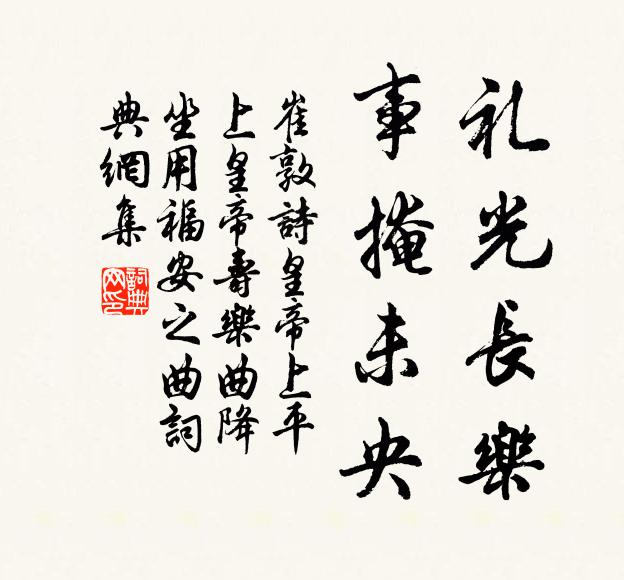 礼光長樂
事掩未央
崔敦詩皇帝上平
上皇帝壽樂曲降
坐用福安之曲詞
典網集
詞典
网印